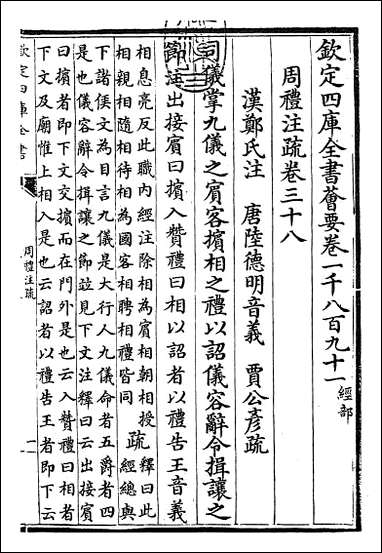 欽定四庫全書薈要卷一千八百九十一 經部
周禮注疏卷三十八
漢鄭氏注 唐陸德明音義 賈公彥疏
司儀掌九儀之賓客擯相之禮以詔儀容辭令揖讓之
節注出接賓曰擯入贊禮曰相以詔者以禮告王音義
相息亮反此職內經注除相為賓相朝相授 疏 釋曰此
相親相隨相待相為國客相聘相禮皆同 經總與
下諸侯文為目言九儀是大行人九儀命者五爵者四
是也儀容辭令揖讓之節竝見下文注釋曰云出接賓
曰擯者即下文交擯而在門外是也云入贊禮曰相者
下文及廟惟上相入是也云詔者以禮告王者即下云
欽定四庫全書
周禮注疏